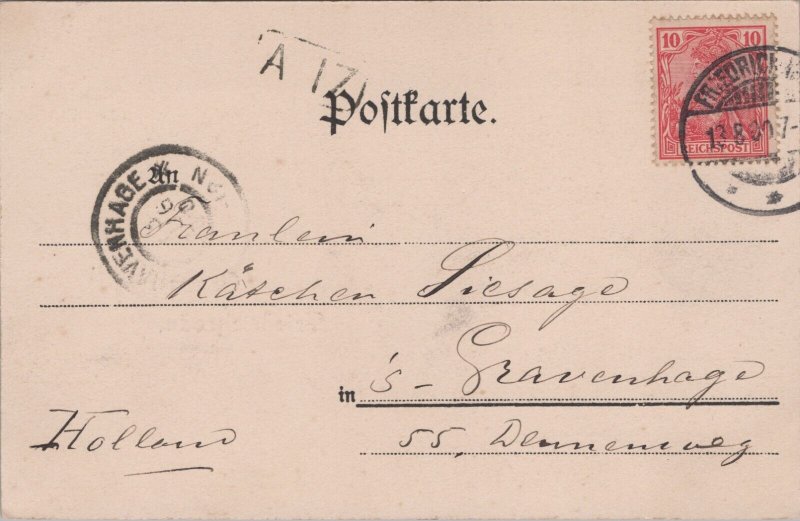 A 17
Postkarte.
10 10
REICHSPOST
FRIEDRICH
13.8.00.7-
An
VENHAGE
Fräulein
Kätchen Siesage
in 's-Gravenhage
55, Dennenweg
Holland